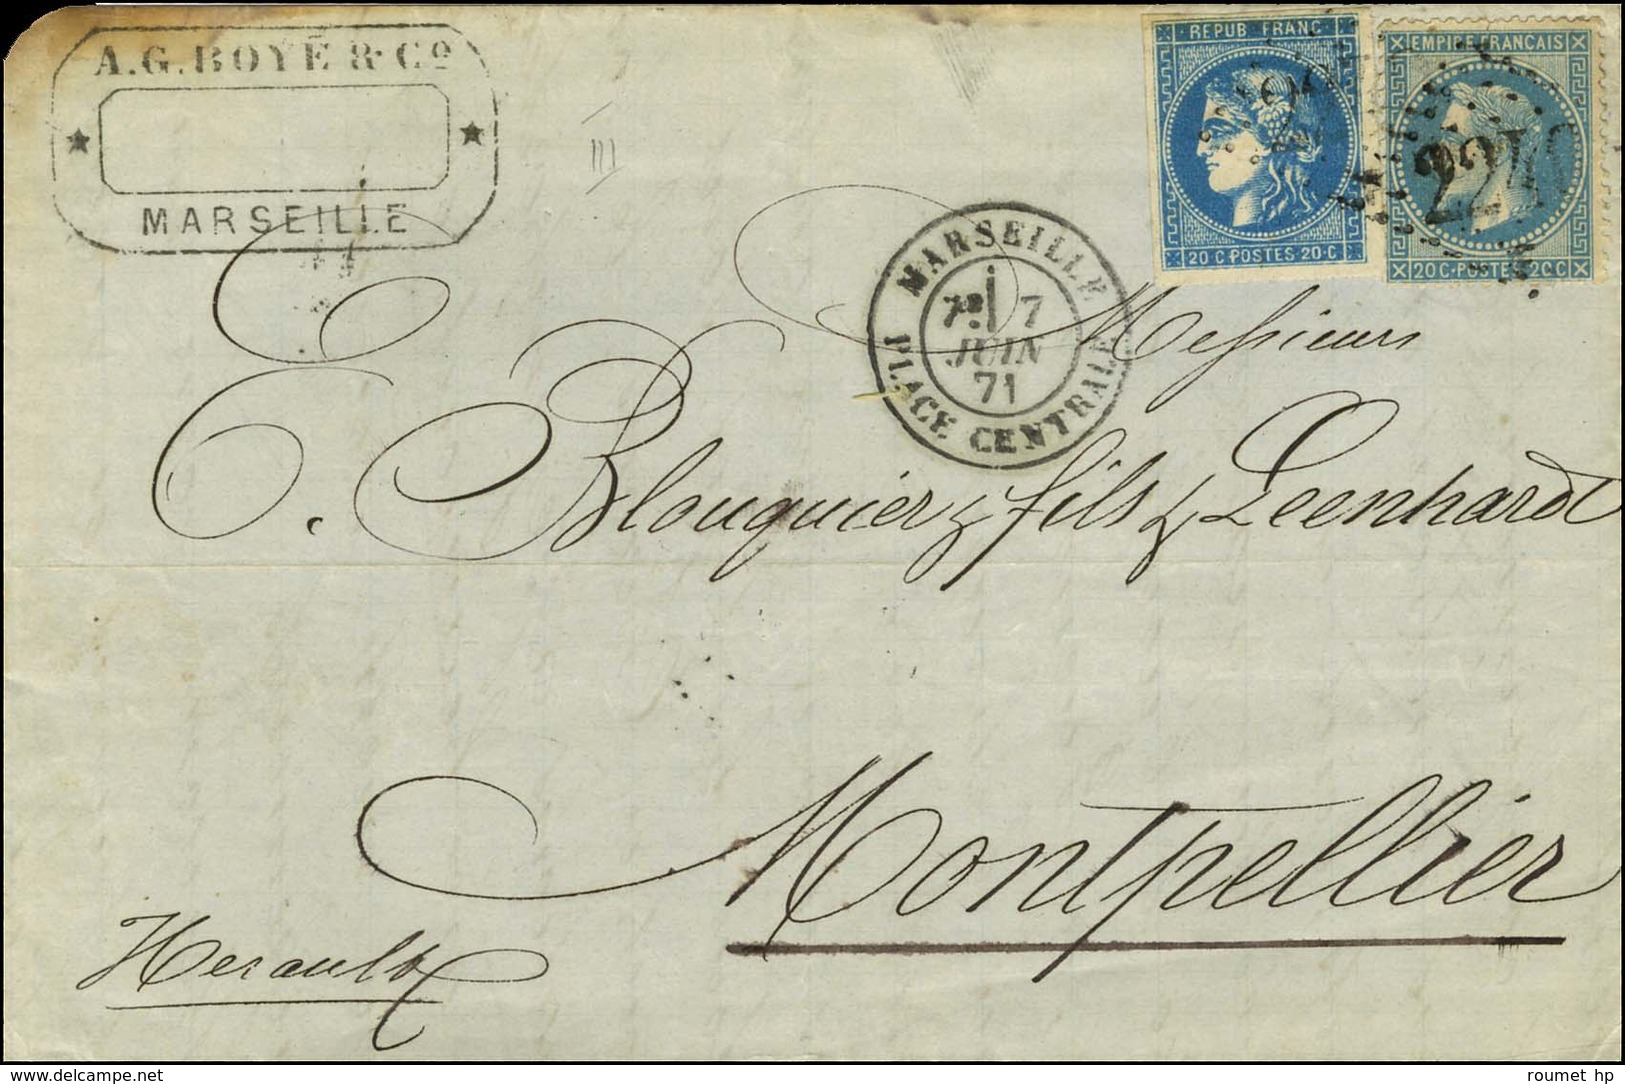 A.G. BOYÉ & Cº
MARSEILLE
REPUB FRANC
20·C·POSTES·20·C
EMPIRE FRANCAIS
20C·POSTES·20C
2240
MARSEILLE
7 JUIN 71
PLACE CENTRALE
Messieurs
E. Blouquier & fils & Leenhardt
Montpellier
Herault
delcampe.net
roumet hp